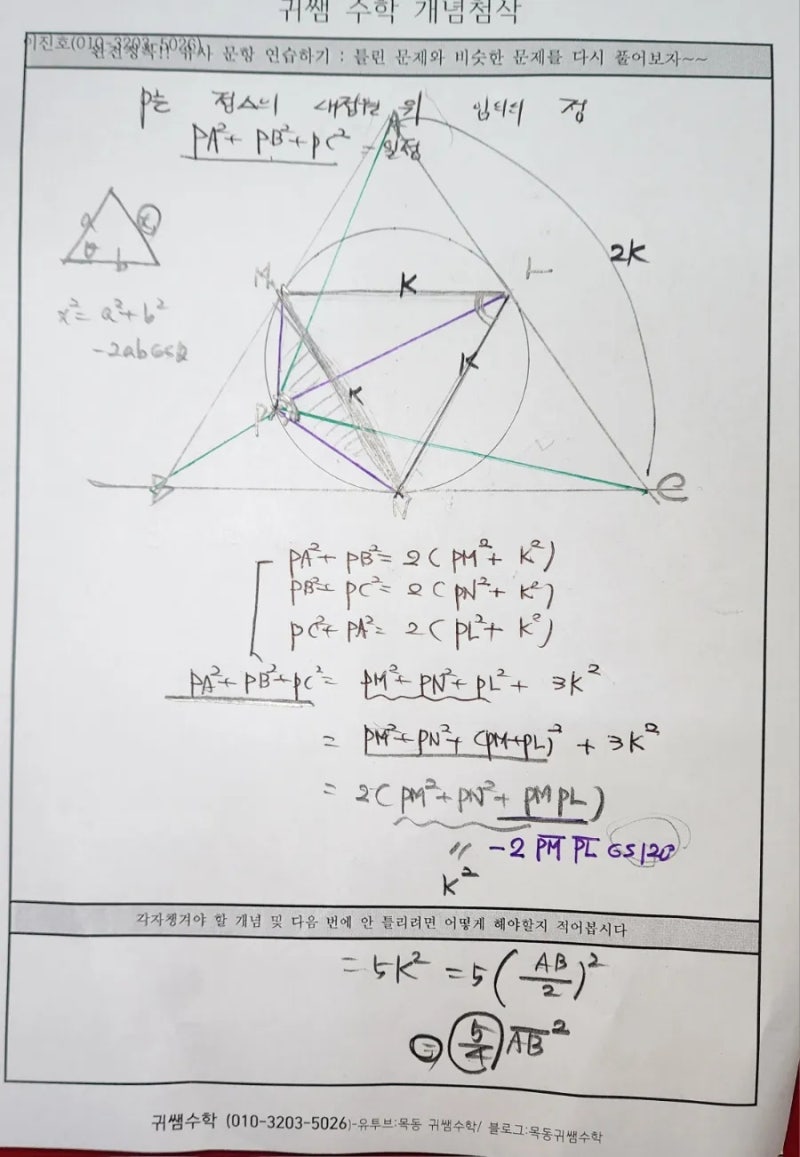 귀쌤 수학 개념첨삭
이진호(010-3203-5026)
완전정복!! 유사 문항 연습하기 : 틀린 문제와 비슷한 문제를 다시 풀어보자~~
P는 접스의 내접원의 임의의 점
PA²+ PB²+PC² = 일정
A
a
x
θ
b
x²= a²+b²
-2abcosθ
2K
M
K
L
K
K
P
B
N
C
PA²+ PB²= 2(PM²+ K²)
PB²+ PC²= 2(PN²+ K²)
PC²+ PA²= 2(PL²+ K²)
PA²+PB²+PC²= PM²+PN²+PL²+ 3K²
= PM²+PN²+(PM+PL)²+3K²
= 2(PM²+PN²+PMPL)
〃 -2 PM PL cos120
K²
각자챙겨야 할 개념 및 다음 번에 안 틀리려면 어떻게 해야할지 적어봅시다
= 5K² = 5(AB/2)²
= 5/4 AB²
귀쌤수학 (010-3203-5026)-유투브:목동 귀쌤수학/ 블로그:목동귀쌤수학